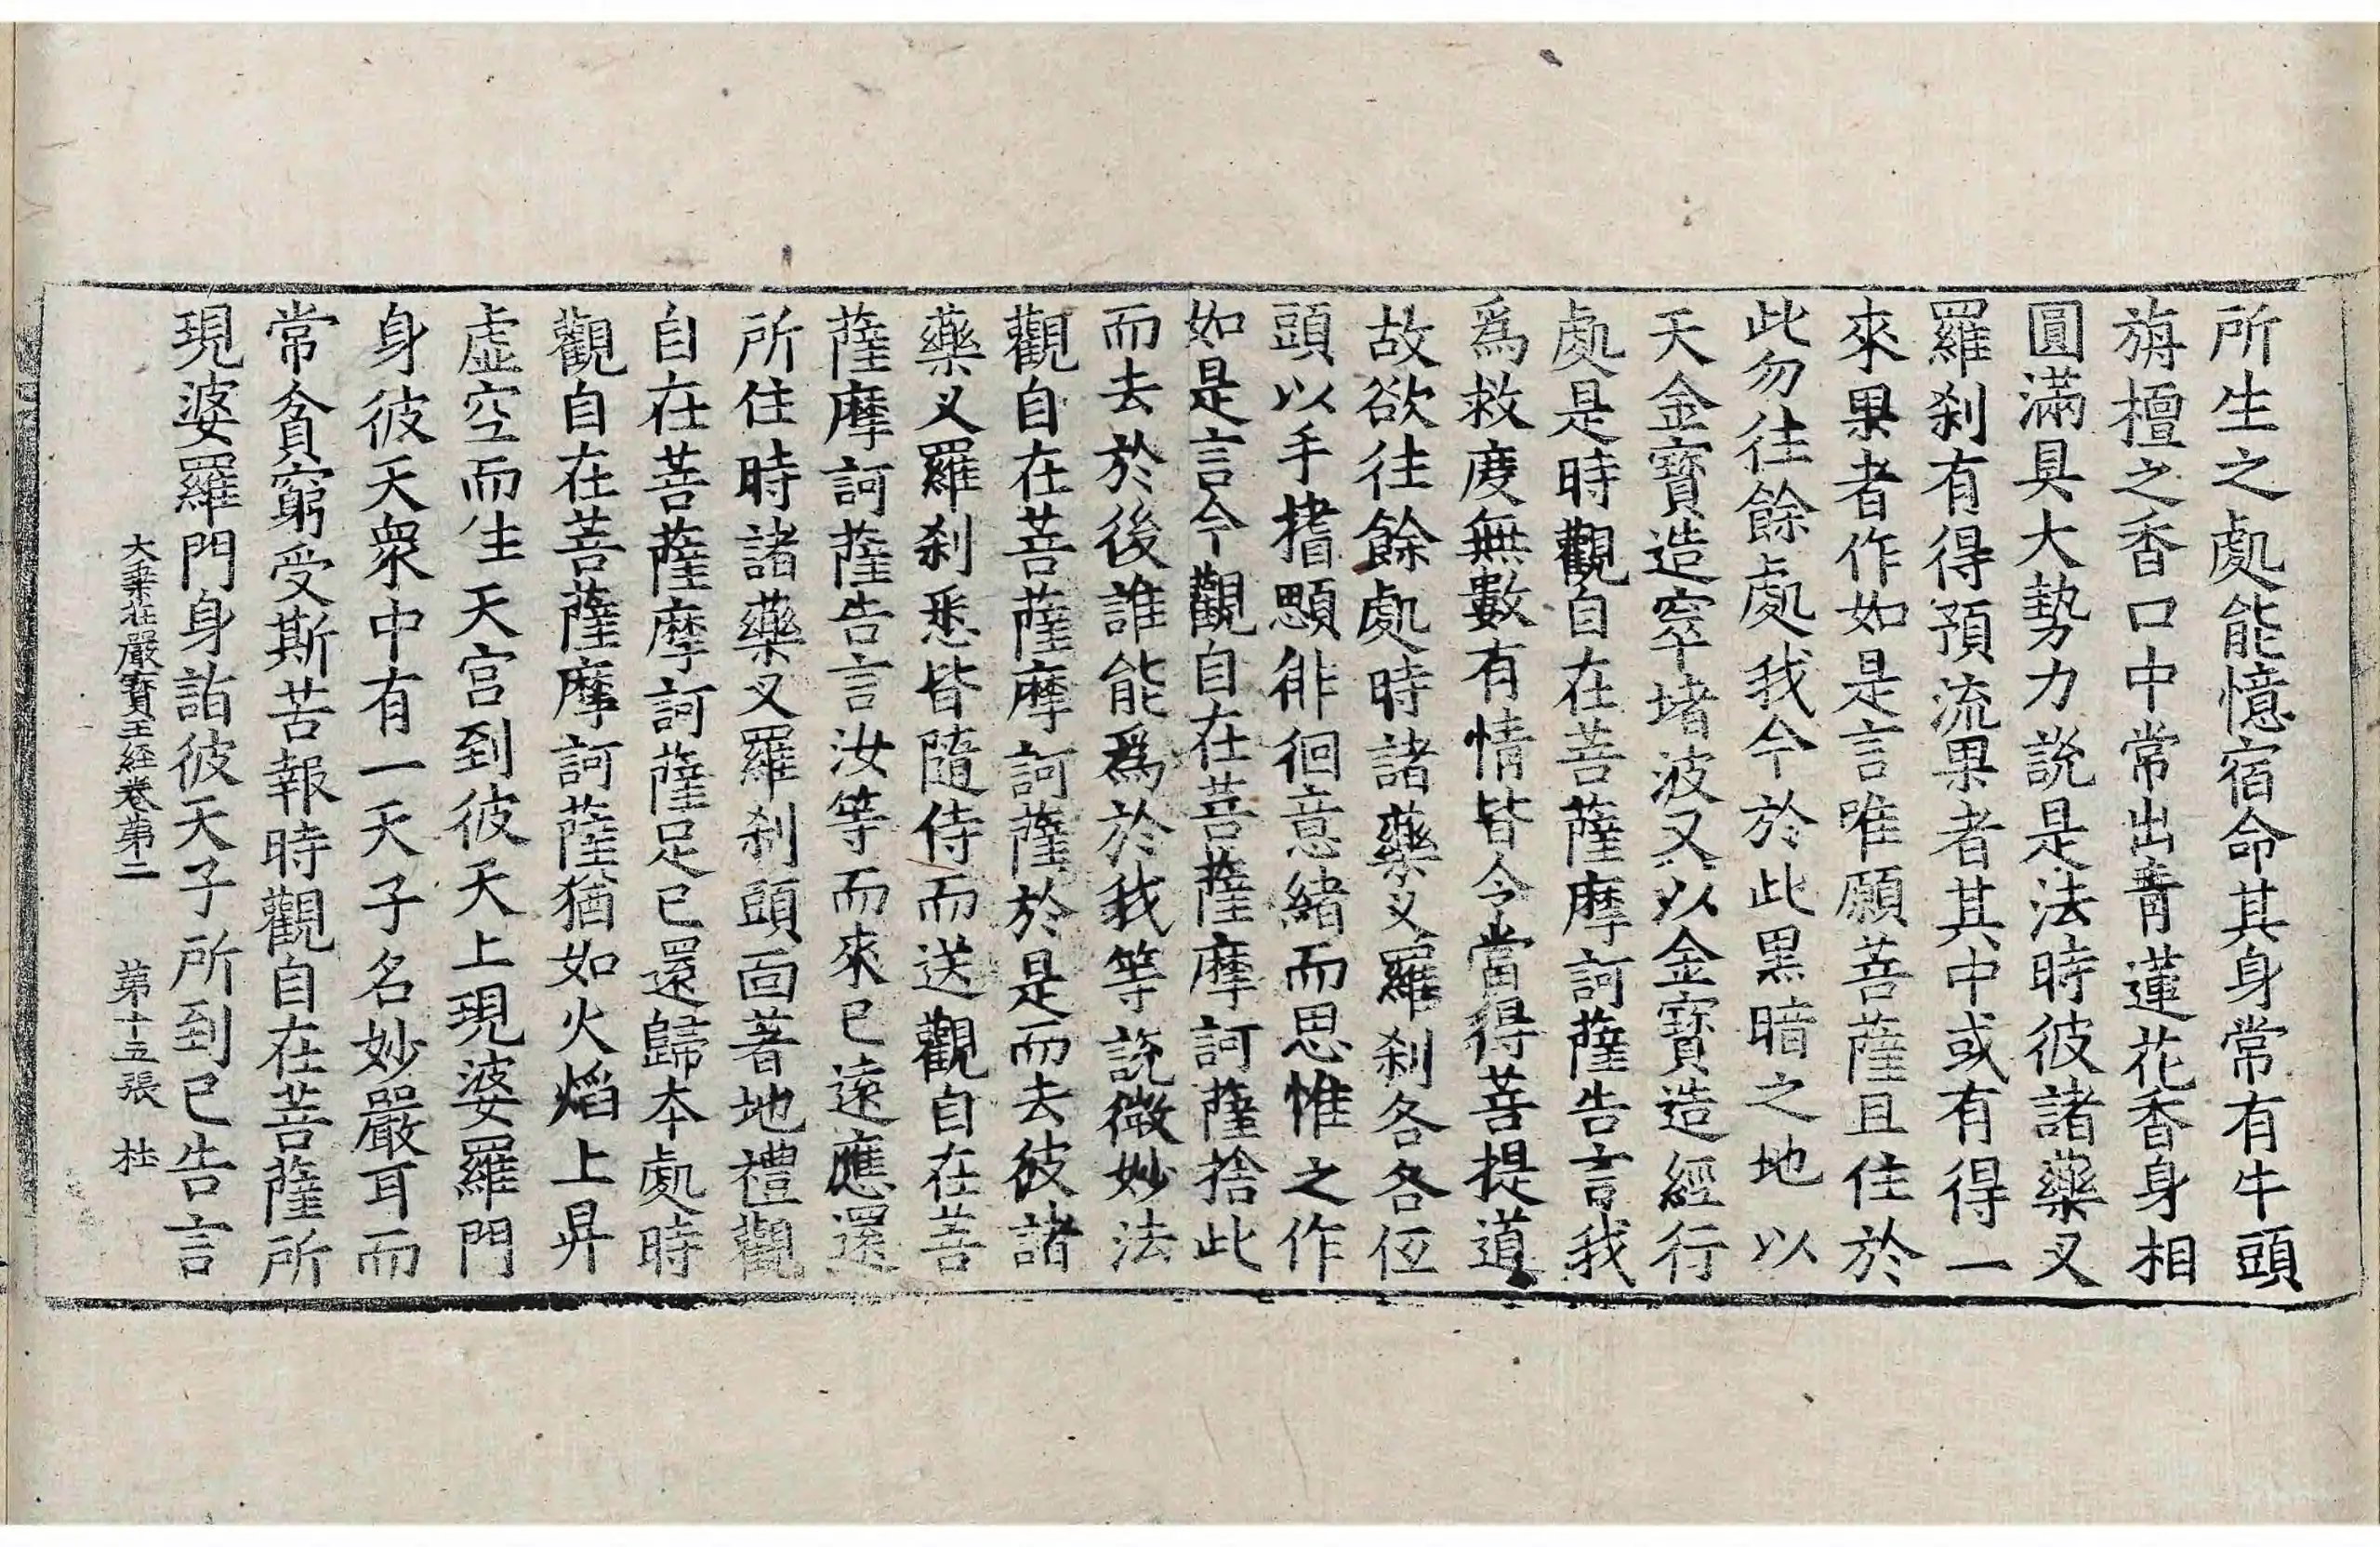 所生之處能憶宿命其身常有牛頭
旃檀之香口中常出青蓮花香身相
圓滿具大勢力說是法時彼諸藥叉
羅刹有得預流果者其中或有得一
來果者作如是言唯願菩薩且住於
此勿往餘處我今於此黑暗之地以
天金寶造窣堵波又以金寶造經行
處是時觀自在菩薩摩訶薩告言我
爲救度無數有情皆令當得菩提道
故欲往餘處時諸藥叉羅刹各各低
頭以手搘顋徘徊意緒而思惟之作
如是言今觀自在菩薩摩訶薩捨此
而去於後誰能爲於我等說微妙法
觀自在菩薩摩訶薩於是而去彼諸
藥叉羅刹悉皆隨侍而送觀自在菩
薩摩訶薩告言汝等而來已遠應還
所住時諸藥叉羅刹頭面著地禮觀
自在菩薩摩訶薩足已還歸本處時
觀自在菩薩摩訶薩猶如火焰上昇
虛空而往天宮到彼天上現婆羅門
身彼天衆中有一天子名妙嚴耳而
常貧窮受斯苦報時觀自在菩薩所
現婆羅門身詣彼天子所到已告言
大乗莊嚴寶王經卷第二 第十五張 杜